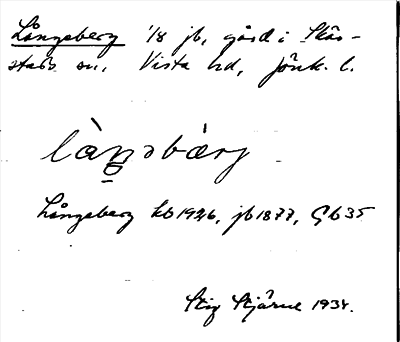 Långeberg 1/8 jb, gård i Skär-
stads sn, Vista hd, Jönk. l.
làŋəbærj
Långeberg kb 1926, jb 1877, Gb 35
Stig Stjärne 1934.